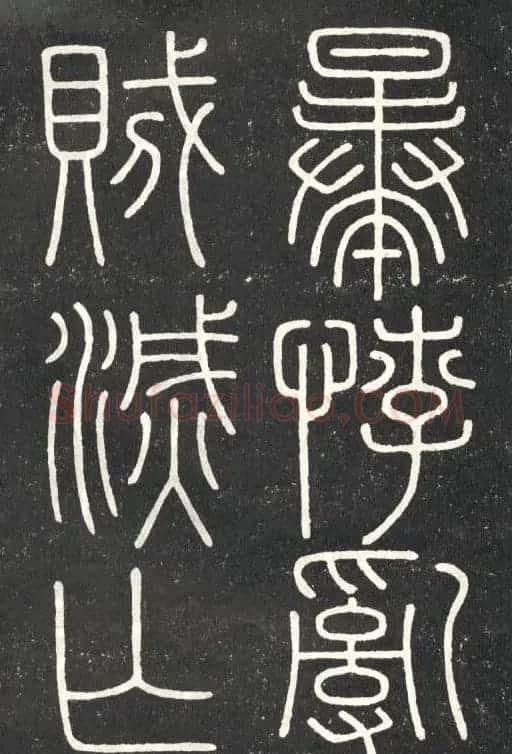 暴悖亂
賊滅亡
Shufaziliao.COM